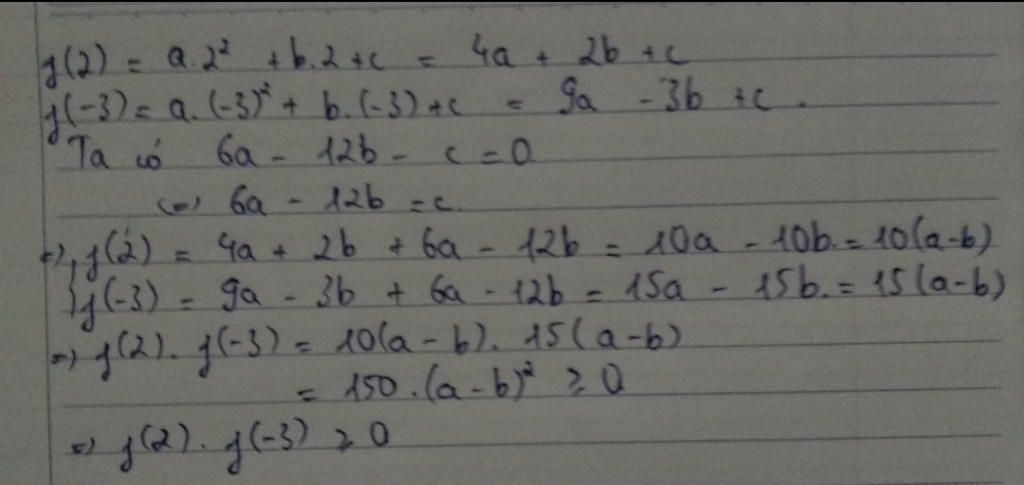 f(2) = a.2² + b.2 + c = 4a + 2b + c
f(-3) = a.(-3)² + b.(-3) + c = 9a - 3b + c.
Ta có 6a - 12b - c = 0
(=) 6a - 12b = c.
=) f(2) = 4a + 2b + 6a - 12b = 10a - 10b. = 10(a-b)
f(-3) = 9a - 3b + 6a - 12b = 15a - 15b. = 15(a-b)
=) f(2). f(-3) = 10(a-b). 15(a-b)
= 150.(a-b)² ≥ 0
=) f(2). f(-3) ≥ 0